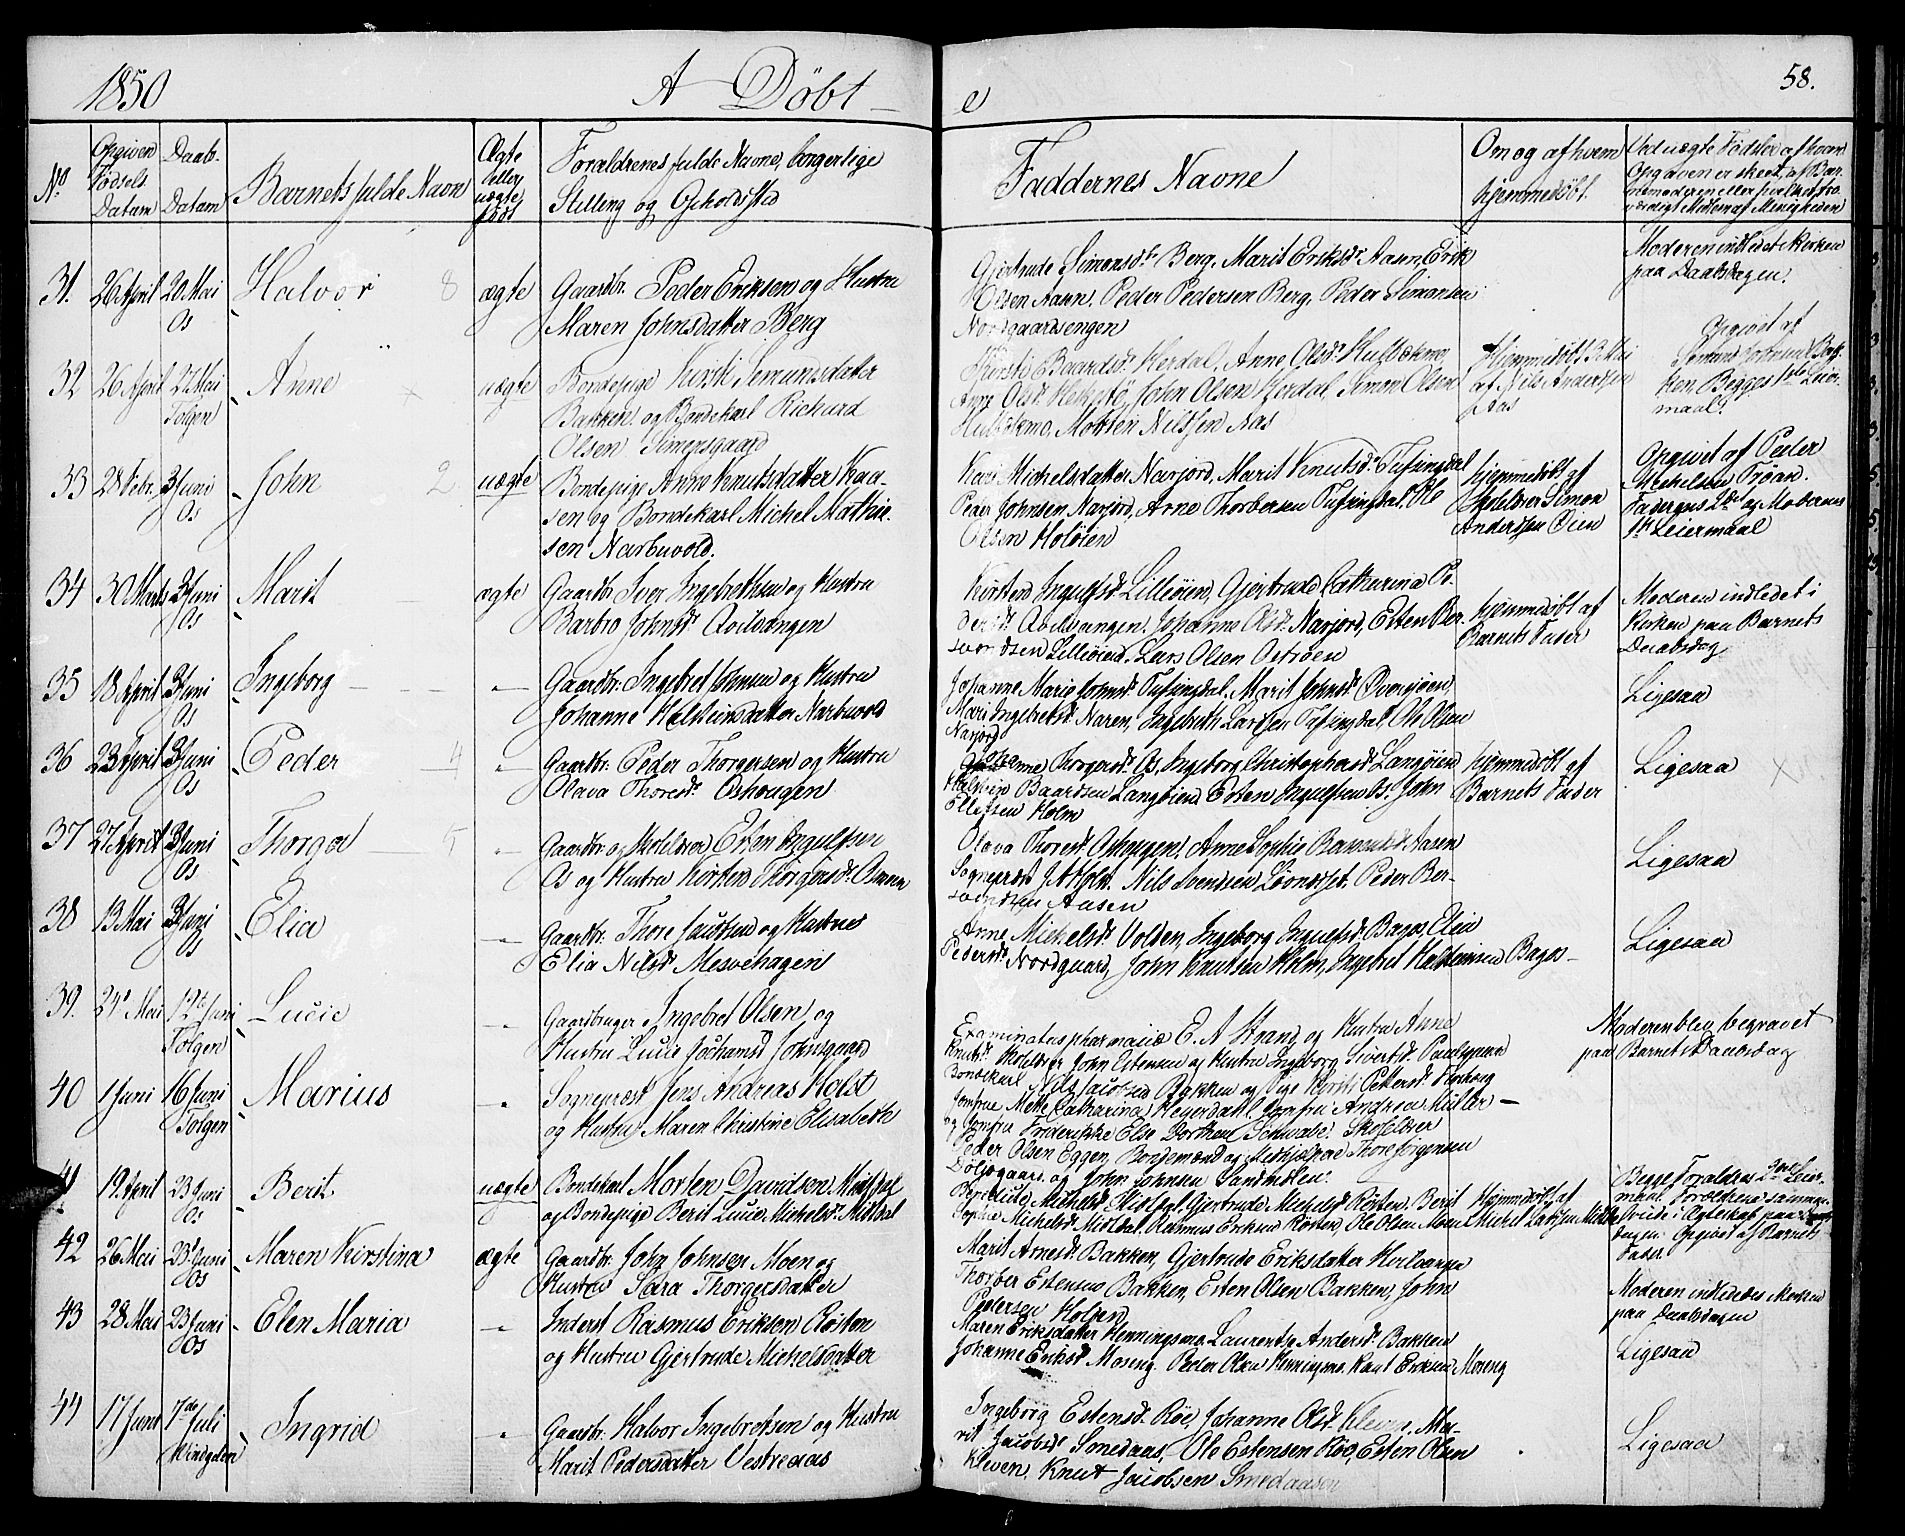 1850 A Döbt e 58.
No. Opgiven Fødsels Datum Daabs-Datum Barnets fulde Navn Ægte eller uægte født Forældrenes fulde Navne, borgerlige Stilling og Opholdsted Faddernes Navne Om og af hvem hjemmedöbt. Ved uægte Födsler af hvem Opgaven er skeet, af Barnemoderen eller hvilket troværdigt Medlem af Menigheden
31. 26 April 20 Mai Halvor 8 ægte Gaardbr. Peder Eriksen og Hustru
Os Maren Johnsdatter Berg
Gjertrude Simonsd. Berg, Marit Eriksd. Aasn, Erik
Olsen Aasn, Peder Pedersen Berg, Peder Simonsen
Nordgaardsengen
Moderen indledet i Kirken
paa Daabsdagen.
32 26 April 21 Mai Anne uægte Bondepige Kirsti Semunsdatter
Tolgen Bakken og Bondekarl Richard
Olsen Simensgaard
Kirsti Baardsd. Herdal, Anne Olsd. Hulbækmo,
Anne Olsd. John Olsen Herdal, Simon Olsen
Hulbækmo, Morten Nilssen Aas
Hjemmedöbt Mai
af Nils Andersen
Aas
Opgivet af
ken. Begges 1ste Leier-
maal.
33 28 Febr. 3 Juni John 2 uægte Bondepige Anne Knutsdatter Kaa-
Os sen og Bondekarl Michel Mathie-
sen Narbuvold.
Kari Michelsdatter Narjord, Marit Knutsd. Tufsingdal
Peder Johnsen Narjord, Arne Thorbersen Tufsingdal, Ole
Olsen Holöien
hjemmedöbt af
Skolelærer Simon
Andersen Öien
Opgivet af Peder
Michelsen Tröan.
Faderens 2det og Moderens
1ste Leiermaal
34 30 Marts 3 Juni Marit ægte Gaardbr. Iver Ingebrethsen og Hustru
Os Barbro Johnsd. Qvilvangen
Kirsten Ingulfsd. Lilleöien, Gjertrude Catharina Pe-
dersd. Qvilvangen, Johanne Olsd. Narjord, Esten Ber-
svendsen Lilleöien, Lars Olsen Osroen
hjemmedöbt af
Barnets Fader
Moderen indledet i
Kirken paa Barnets
Daabsdag
35 18 April 3 Juni Ingeborg — Gaardbr. Ingebret Johnsen og Hustru
Os Johanne Halsteinsdatter Narbuvold
Johanne Marie Johnsd. Tufsingdal, Marit Johnsd. Oversjöen,
Mari Ingebretsd. Naren, Ingebreth Larsen Tufsingdal, Ole Olsen
Narjord
Ligesaa
36 23 April 3 Juni Peder 4 — Gaardbr. Peder Thorgersen og Hustru
Os Olava Thoresd. Oshaugen
Johanne Thorgersd. Os, Ingeborg Christophersd. Langöien
Halstein Baardsen Langöien, Esten Ingulfsen Os, John
Ellefsen Holm
hjemmedöbt af
Barnets Fader
Ligesaa
37 27 April 3 Juni Thorger 5 — Gaardbr. og Skolelærer Esten Ingulfsen
Os Os og Hustru Kirsten Thorgersd.
Olava Thoresd. Oshaugen, Anne Sophie Bersvendsd. Aasen
Sognepræst J. A. Holst, Nils Svendsen Peder Ber-
svendsen Aasen
Ligesaa
38 13 Mai 3 Juni Elia — Gaardbr. Thore Jacobsen og Hustrue
Os Elia Nilsd. Mosvehagen
Anne Michelsd. Volden, Ingeborg Ingulfsd. Bagos, Elia
Pedersd. Nordgaard, John Knutsen Holm, Ingebret Halsteinsen Bagos —
Ligesaa
39. 24 Mai 12te Juni Lucie — Gaardbruger Ingebret Olsen og
Tolgen Hustru Lucie Jochumsd. Johnsgaard
Examinatus pharmaciæ E. A. Strand og Hustru Anna
Knutsd. Skolelærer John Estensen og Hustru Ingeborg Sivertsd.
Bondekarl Nils Jacobsen Bakken og Pige Kirsti Pettersd.
Moderen blev begravet
paa Barnets Daabsdag
40 1 Juni 16 Juni Marius — Sognepræst Jens Andreas Holst
Tolgen og Hustru Maren Kirstine Elisabeth
Jomfrue Mette Catharina Hegerdahl, Jomfru Andrea Müller —
og Jomfru Frederikke Else Dorthea Schwabe. Skolelærer
Peder Olsen Eggen, Bondemænd og Thore Jörgensen
og John Johnsen Sandmölen.
41 19 April 23 Juni Berit uægte Bondekarl Morten Davidsen Midtdal
Os og Bondepige Berit Lucie Michelsd. Midtdal
Michelsd. Midtdal, Gjertrude Michelsd. Rösten, Berit
Sophie Michelsd. Midtdal, Rasmus Eriksen Rösten, Ole Olsen Moen
Hjemmedöbt af
Michel Larssen Midtdal
Begge Forældres 2det Leier-
maal.
Opgivet af Barnets
Fader
42 26 Mai 23 Juni Maren Kirstina ægte Gaardbr. John Johnsen Moen og
Os Hustru Sara Thorgersdatter
Marit Arnesd. Bakken, Gjertrude Eriksdatter
Thorber Estensen Bakken, Esten Olsen Bakken, John
Pedersen Holsen
Moderen indledet i Kirken
paa Daabsdagen
43 28 Mai 23 Juni Elen Maria — Inderst Rasmus Eriksen Rösten
Os og Hustru Gjertrude Michelsdatter
Maren Eriksdatter Henningsmo, Laurentze Andersd. Bakken
Johanne Eriksd. Moseng, Peder Olsen Henningsmo, Knut Eriksen Moseng
Ligesaa
44 17 Juni 7de Juli Ingrid — Gaardbr. Halvor Ingebretsen og Hustru
Vingelen Marit Pedersdatter Vestreaas
Ingeborg Estensd. Röe, Johanne Olsd. Kleven, Ma-
rit Jacobsd. Smedaas, Ole Estensen Röe, Esten Olsen
Kleven, Knut Jacobsen Smedaasen
Ligesaa